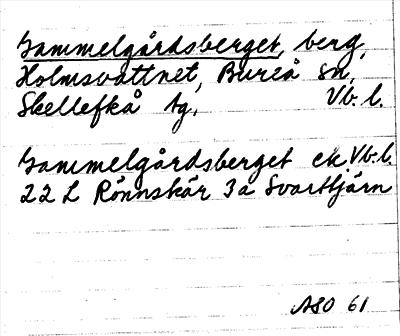 Gammelgårdsberget, berg,
Holmsvattnet, Bureå sn,
Skellefteå tg, Vb. l.
Gammelgårdsberget ek. Vb. l.
22 L Rönnskär 3a Svarttjärn
ASO 61